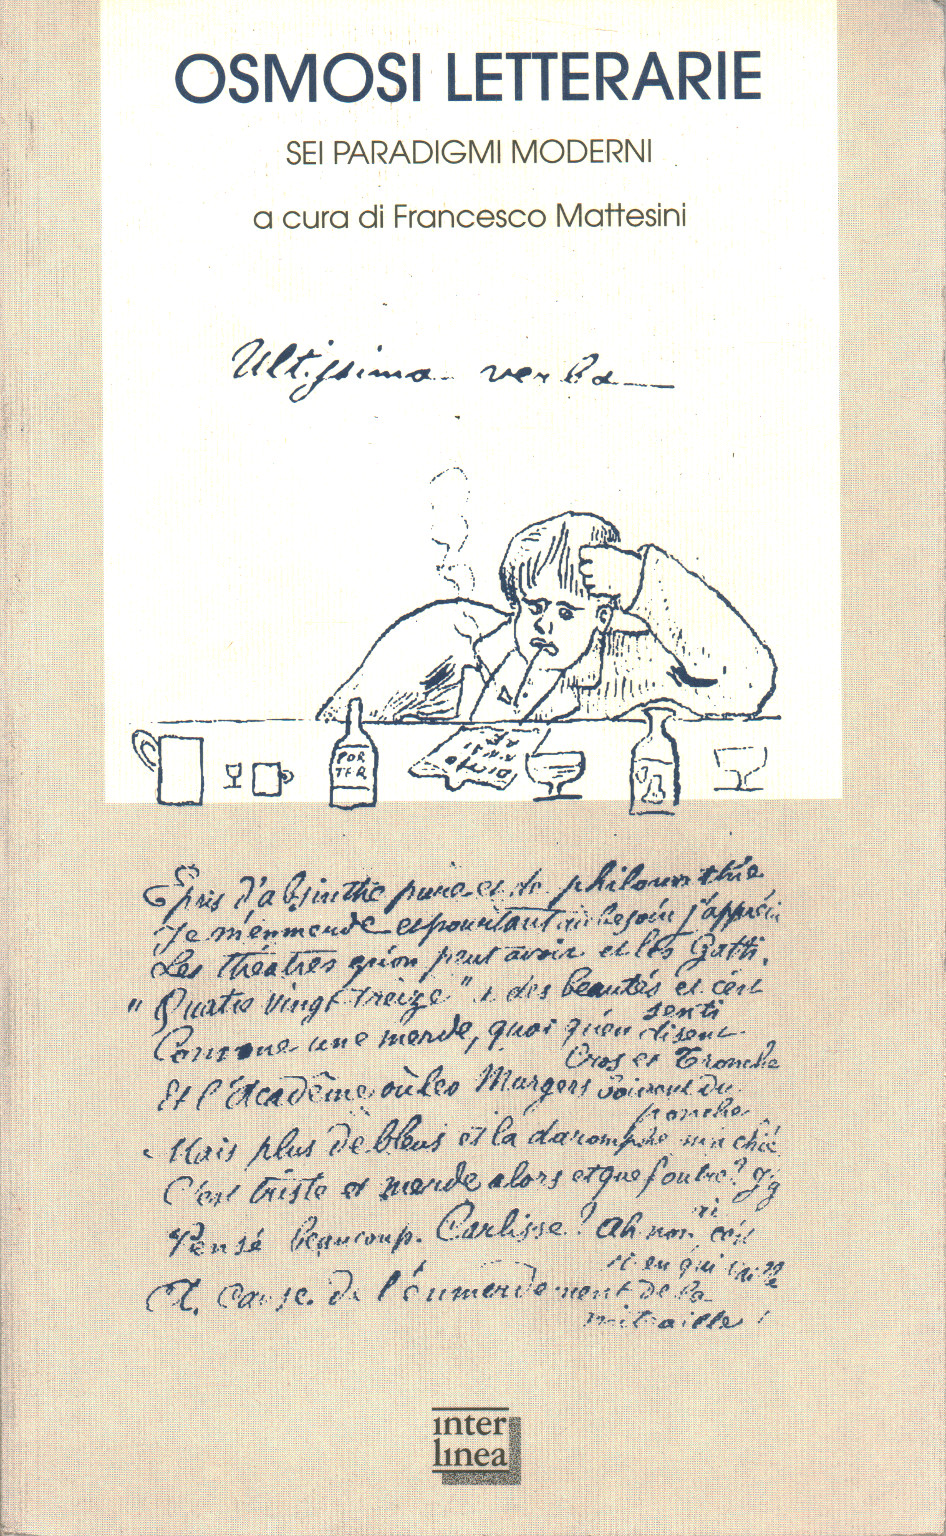 OSMOSI LETTERARIE
SEI PARADIGMI MODERNI
a cura di Francesco Mattesini
Ultissima verba
POR
TER
Épris d'absinthe pure et de philomathie
Je m'emmerde et pourtant au besoin j'apprécie
Les théâtres qu'on peut avoir et les Gatti.
"Quatre vingt treize" a des beautés et c'est senti
Comme une merde, quoi qu'en disent
Cros et Tronche
Et l'Académie où les Murgers boivent du
ponche
Mais plus de bleus et la daromphe m'a chié
C'est triste et merde alors et que foutre? J'y
Pensé beaucoup. Carlisse? Ah non, c'est
rien qui vaille
À cause de l'emmerdement de la
mitraille!
inter
linea